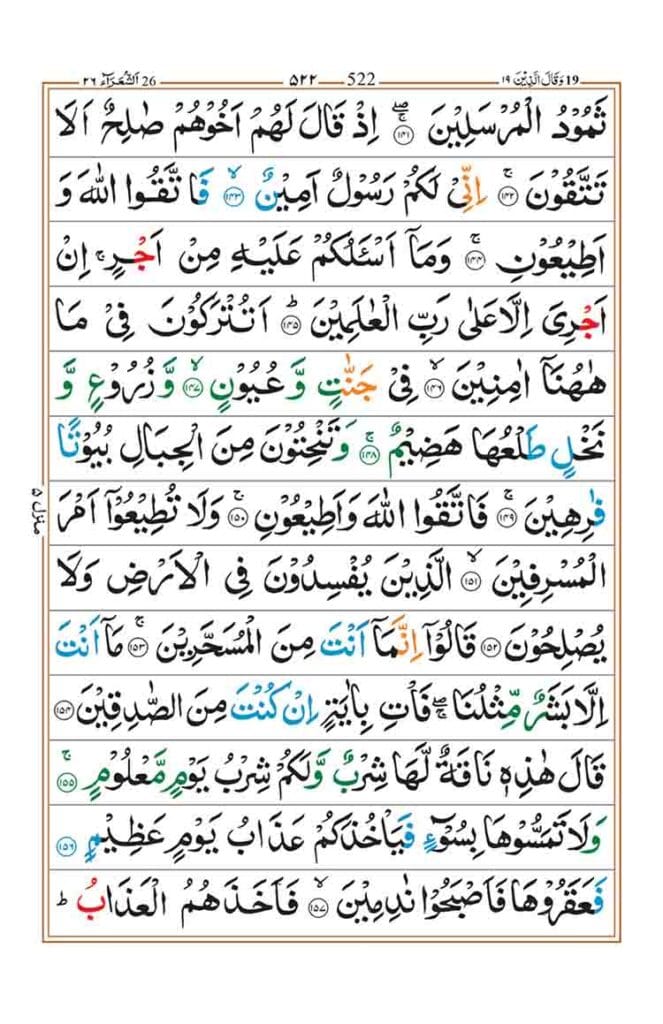 19 وَقَالَ الَّذِيْنَ ١٩ 522 ٥٢٢ 26 اَلشُّعَرَآء ٢٦
ثَمُوْدُ الْمُرْسَلِيْنَ ۚۖ ﴿١٤١﴾ اِذْ قَالَ لَهُمْ اَخُوْهُمْ صٰلِحٌ اَلَا
تَتَّقُوْنَ ۚ ﴿١٤٢﴾ اِنِّىْ لَكُمْ رَسُوْلٌ اَمِيْنٌ ۙ ﴿١٤٣﴾ فَاتَّقُوا اللّٰهَ وَ
اَطِيْعُوْنِ ۚ ﴿١٤٤﴾ وَمَاۤ اَسْـَٔلُكُمْ عَلَيْهِ مِنْ اَجْرٍ ۚ اِنْ
اَجْرِىَ اِلَّا عَلٰى رَبِّ الْعٰلَمِيْنَ ؕ ﴿١٤٥﴾ اَتُتْرَكُوْنَ فِىْ مَا
هٰهُنَاۤ اٰمِنِيْنَ ۙ ﴿١٤٦﴾ فِىْ جَنّٰتٍ وَّعُيُوْنٍ ۙ ﴿١٤٧﴾ وَّزُرُوْعٍ وَّ
نَخْلٍ طَلْعُهَا هَضِيْمٌ ۚ ﴿١٤٨﴾ وَتَنْحِتُوْنَ مِنَ الْجِبَالِ بُيُوْتًا
فٰرِهِيْنَ ۚ ﴿١٤٩﴾ فَاتَّقُوا اللّٰهَ وَاَطِيْعُوْنِ ۚ ﴿١٥٠﴾ وَلَا تُطِيْعُوْۤا اَمْرَ
الْمُسْرِفِيْنَ ۙ ﴿١٥١﴾ الَّذِيْنَ يُفْسِدُوْنَ فِى الْاَرْضِ وَلَا
يُصْلِحُوْنَ ﴿١٥٢﴾ قَالُوْۤا اِنَّمَاۤ اَنْتَ مِنَ الْمُسَحَّرِيْنَ ۚ ﴿١٥٣﴾ مَاۤ اَنْتَ
اِلَّا بَشَرٌ مِّثْلُنَا ۚۖ فَاْتِ بِاٰيَةٍ اِنْ كُنْتَ مِنَ الصّٰدِقِيْنَ ﴿١٥٤﴾
قَالَ هٰذِهٖ نَاقَةٌ لَّهَا شِرْبٌ وَّلَكُمْ شِرْبُ يَوْمٍ مَّعْلُوْمٍ ۚ ﴿١٥٥﴾
وَلَا تَمَسُّوْهَا بِسُوْٓءٍ فَيَاْخُذَكُمْ عَذَابُ يَوْمٍ عَظِيْمٍ ﴿١٥٦﴾
فَعَقَرُوْهَا فَاَصْبَحُوْا نٰدِمِيْنَ ۙ ﴿١٥٧﴾ فَاَخَذَهُمُ الْعَذَابُ ؕ
منزل ٥